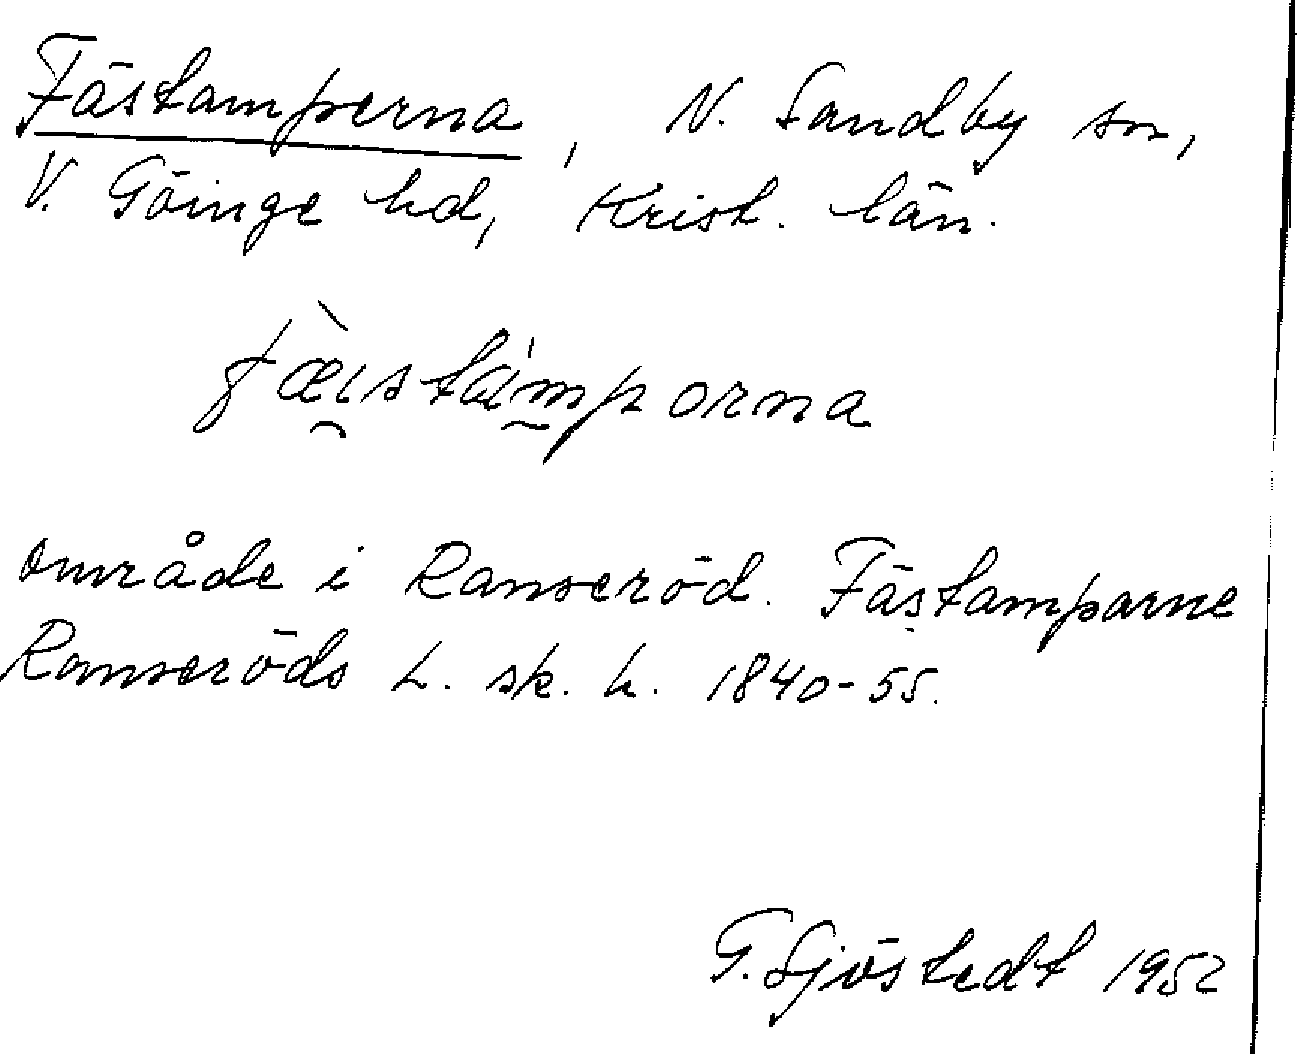 Fästamperna, N. Sandby sn,
V. Göinge hd, Krist. län.
fæ̀istámporna
område i Ranseröd. Fästamparne
Ranseröds L. sk. h. 1840-55.
G. Sjöstedt 1952